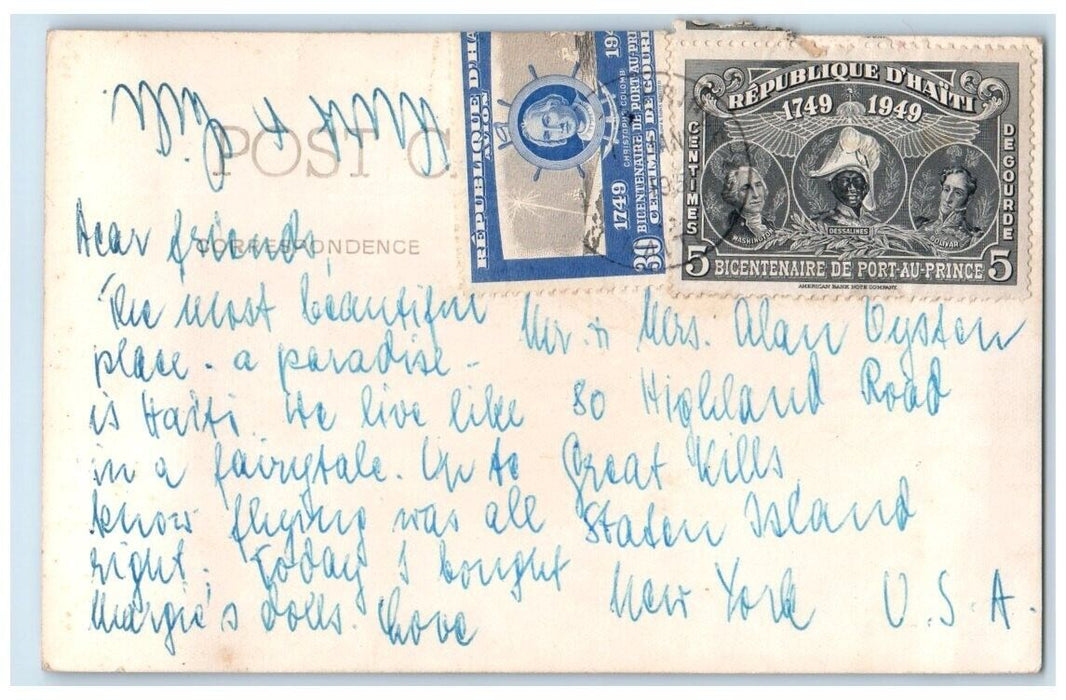 POST C
CORRESPONDENCE
Dear friends,
The most beautiful
place - a paradise -
is Haiti. We live like
in a fairytale. Up to
know flying was all
right. Today I bought
Margie's dolls. Love
Mr. & Mrs. Alan Oysten
80 Highland Road
Great Kills
Staten Island
New York U.S.A.
RÉPUBLIQUE D'HA
AVION
1749
194
CHRISTOPHE COLOMB
BICENTENAIRE DE PORT-AU-PRIN
30 CENTIMES DE GOURD 30
RÉPUBLIQUE D'HAÏTI
1749 1949
CENTIMES
DE GOURDE
WASHINGTON
DESSALINES
BOLIVAR
5 BICENTENAIRE DE PORT-AU-PRINCE 5
AMERICAN BANK NOTE COMPANY.